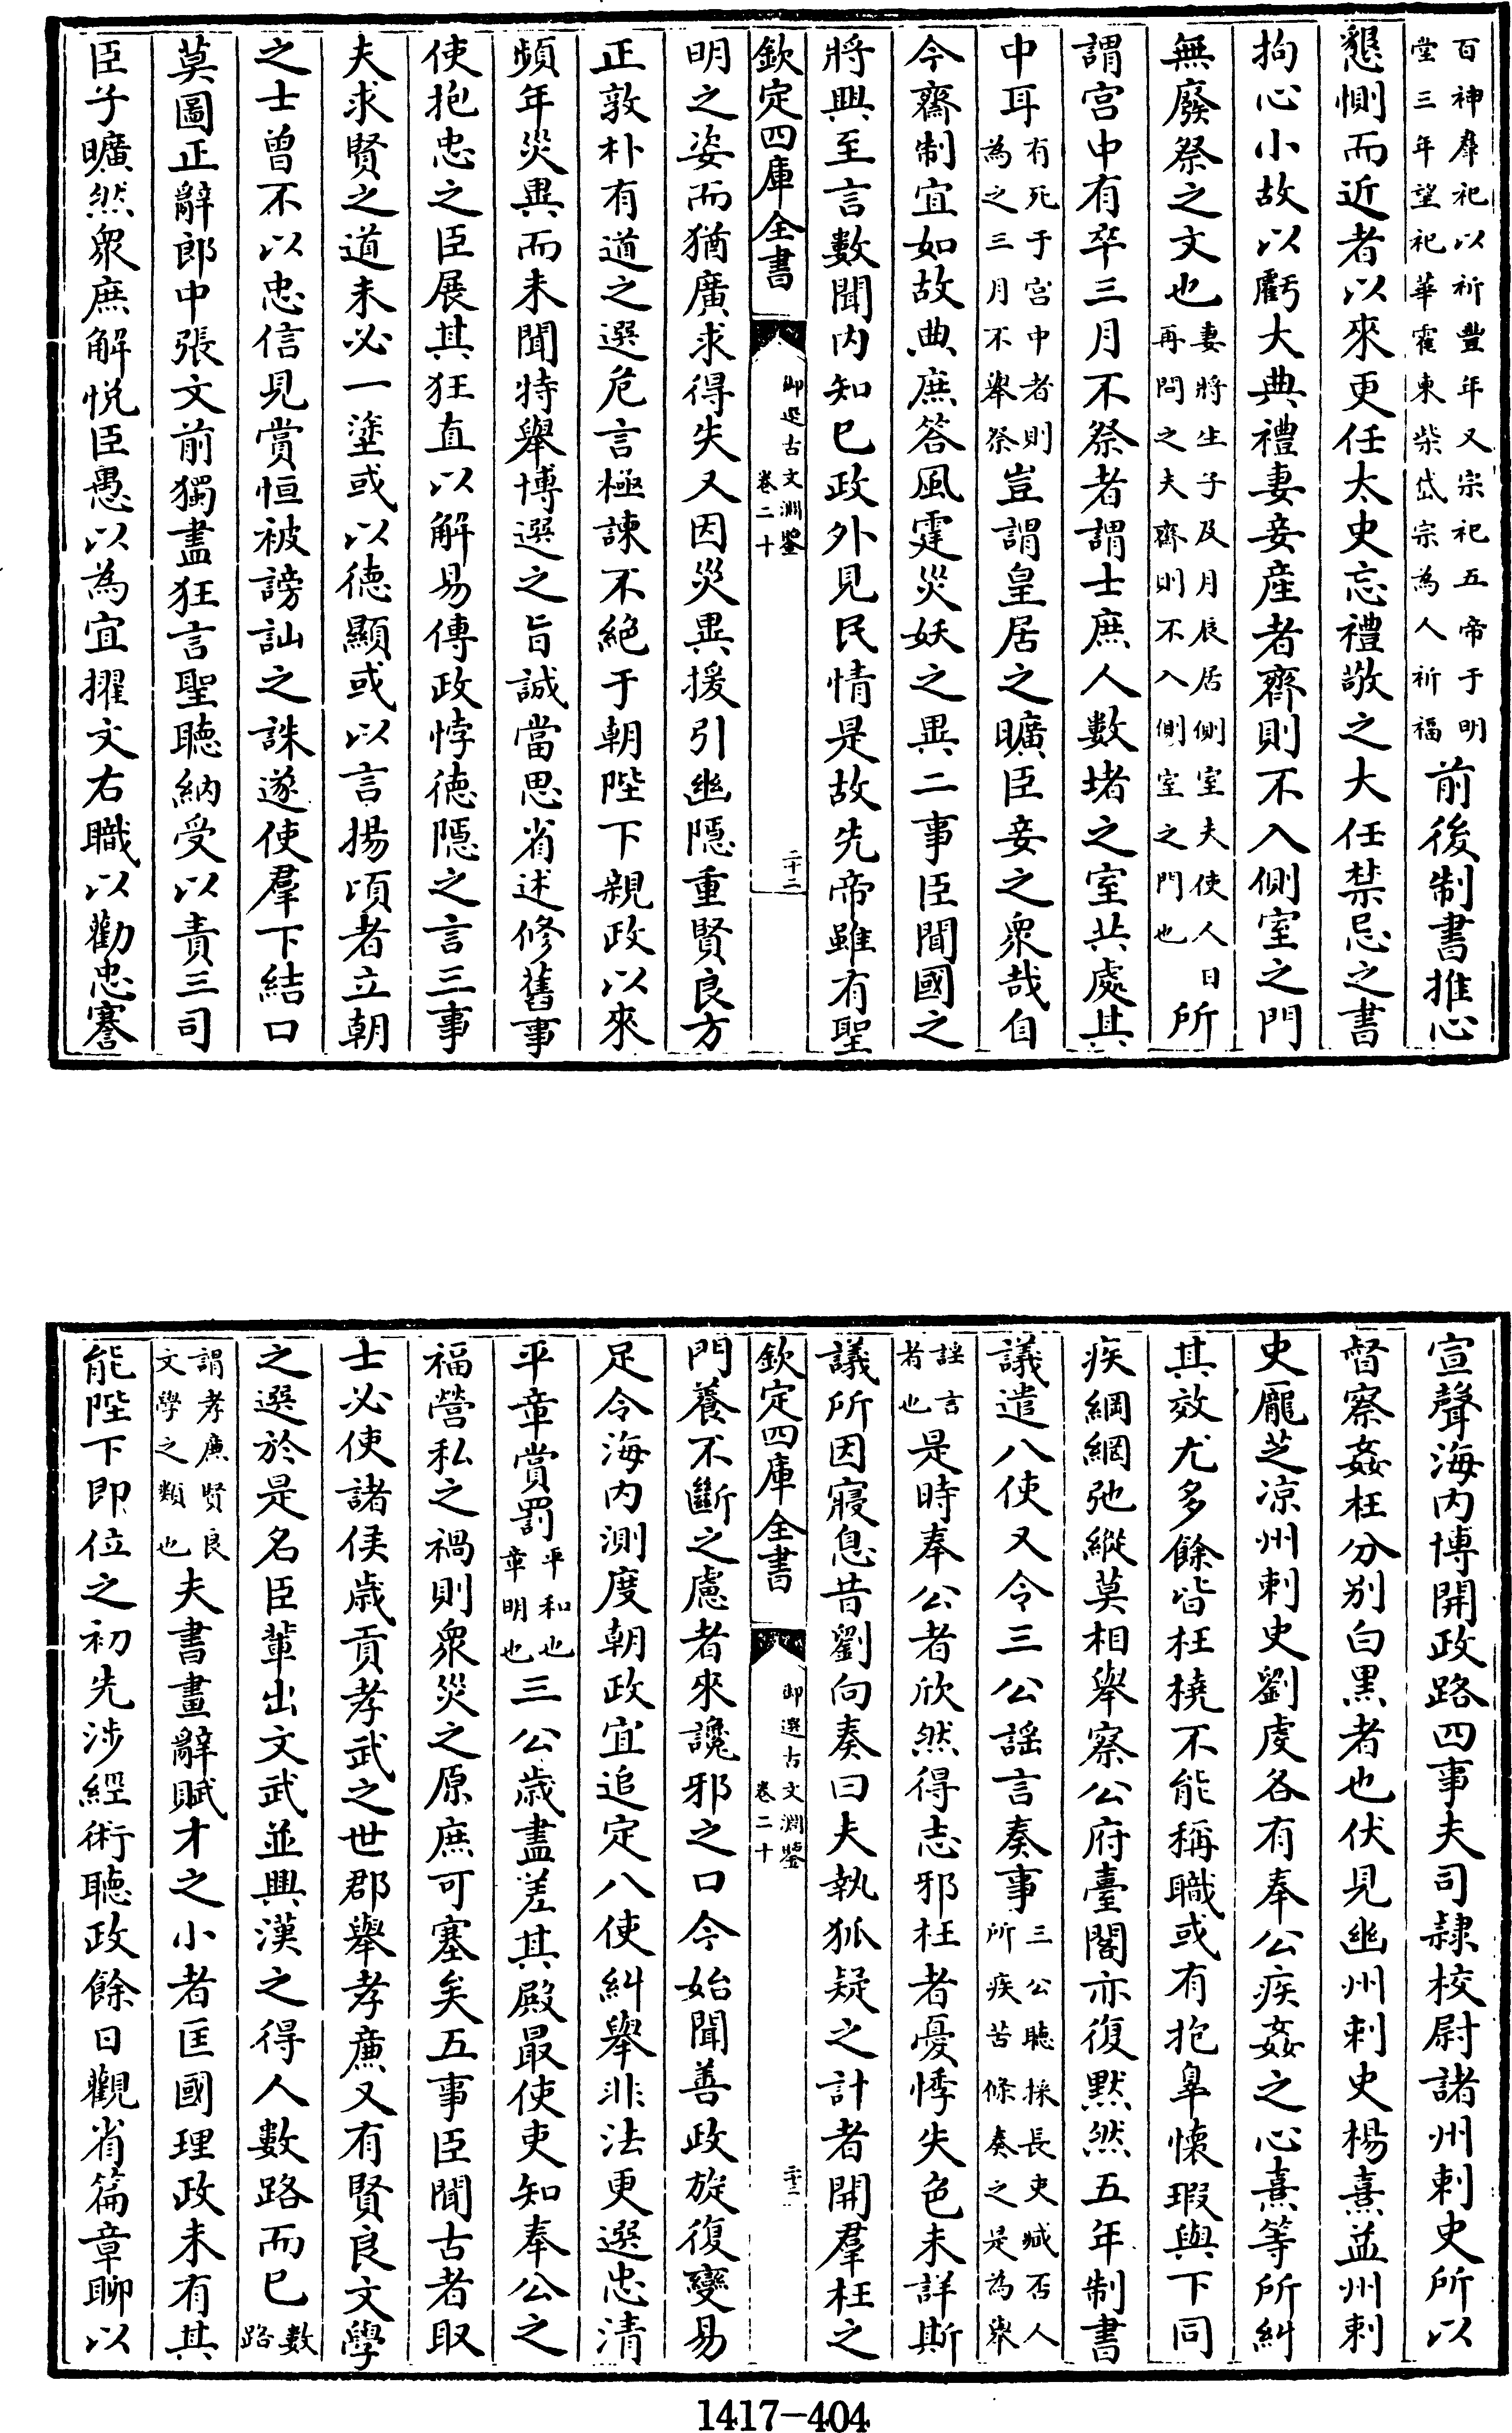 百神羣祀以祈豐年又宗祀五帝于明堂三年望祀華霍東柴岱宗為人祈福前後制書推心
懇惻而近者以來更任太史忘禮敬之大任禁忌之書
拘心小故以虧大典禮妻妾産者齋則不入側室之門
無廢祭之文也妻將生子及月辰居側室夫使人日再問之夫齋則不入側室之門也所
謂宮中有卒三月不祭者謂士庶人數堵之室共處其
中耳有死于宮中者則為之三月不舉祭豈謂皇居之曠臣妾之衆哉自
今齋制宜如故典庶答風霆災妖之異二事臣聞國之
將興至言數聞内知已政外見民情是故先帝雖有聖
欽定四庫全書 御選古文淵鑒 卷二十 二十二
明之姿而猶廣求得失又因災異援引幽隱重賢良方
正敦朴有道之選危言極諫不絶于朝陛下親政以來
頻年災異而未聞特舉博選之旨誠當思省述修舊事
使抱忠之臣展其狂直以解易傳政悖德隱之言三事
夫求賢之道未必一塗或以德顯或以言揚頃者立朝
之士曾不以忠信見賞恒被謗訕之誅遂使羣下結口
莫圖正辭郎中張文前獨盡狂言聖聽納受以責三司
臣子曠然衆庶解悦臣愚以為宜擢文右職以勸忠謇
宣聲海内博開政路四事夫司隸校尉諸州刺史所以
督察姦枉分别白黑者也伏見幽州刺史楊熹益州刺
史龐芝凉州刺史劉虔各有奉公疾姦之心熹等所糾
其效尤多餘皆枉橈不能稱職或有抱辠懷瑕與下同
疾綱網弛縱莫相舉察公府臺閣亦復黙然五年制書
議遣八使又令三公謡言奏事三公聽採長吏臧否人所疾苦條奏之是為舉
謡言者也是時奉公者欣然得志邪枉者憂悸失色未詳斯
議所因寢息昔劉向奏曰夫執狐疑之計者開羣枉之
欽定四庫全書 御選古文淵鑒 卷二十 二十三
門養不斷之慮者來讒邪之口今始聞善政旋復變易
足令海内測度朝政宜追定八使糾舉非法更選忠清
平章賞罰平和也章明也三公歲盡差其殿最使吏知奉公之
福營私之禍則衆災之原庶可塞矣五事臣聞古者取
士必使諸侯歲貢孝武之世郡舉孝廉又有賢良文學
之選於是名臣輩出文武並興漢之得人數路而已數路
謂孝廉賢良文學之類也夫書畫辭賦才之小者匡國理政未有其
能陛下即位之初先涉經術聽政餘日觀省篇章聊以
1417-404